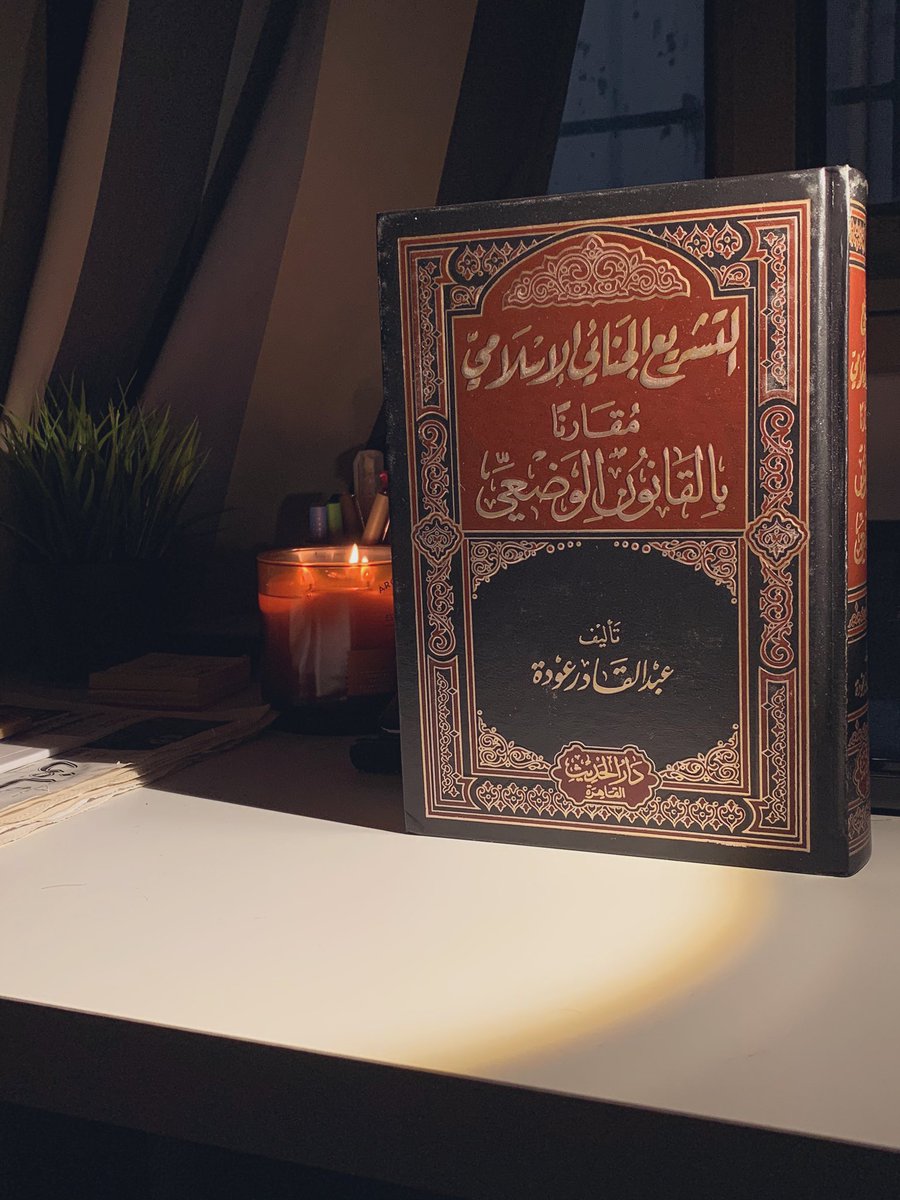 التشريع الجنائي الإسلاميّ
مُقَارنًا
بالقَانوُن الوَضْعيّ
تأليف
عبدالقادر عودة
دار الحديث
القاهرة